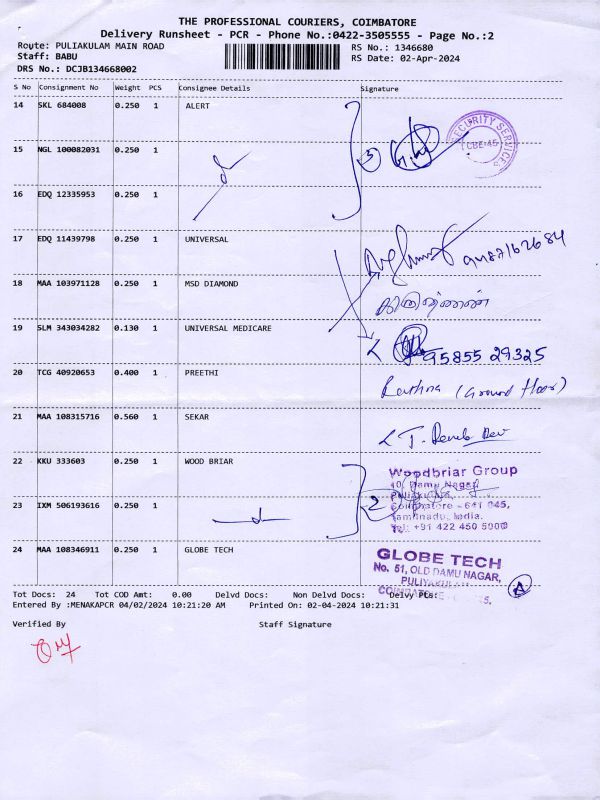 THE PROFESSIONAL COURIERS, COIMBATORE
Delivery Runsheet - PCR - Phone No.:0422-3505555 - Page No.:2
Route: PULIAKULAM MAIN ROAD RS No.: 1346680
Staff: BABU RS Date: 02-Apr-2024
DRS No.: DCJB134668002
S No Consignment No Weight PCS Consignee Details Signature
14 SKL 684008 0.250 1 ALERT
SECURITY SERVICES
CBE-45
15 NGL 100082031 0.250 1 3
16 EDQ 12335953 0.250 1
17 EDQ 11439798 0.250 1 UNIVERSAL
18 MAA 103971128 0.250 1 MSD DIAMOND
19 SLM 343034282 0.130 1 UNIVERSAL MEDICARE
95855 29325
20 TCG 40920653 0.400 1 PREETHI
(Ground floor)
21 MAA 108315716 0.560 1 SEKAR
22 KKU 333603 0.250 1 WOOD BRIAR
Woodbriar Group
40, Damu Nagar,
23 IXM 506193616 0.250 1 2
Coimbatore - 641 045,
Tamilnadu, India.
Tel: +91 422 450 5900
24 MAA 108346911 0.250 1 GLOBE TECH
GLOBE TECH
No. 51, OLD DAMU NAGAR,
PULIYAKULAM
A
Tot Docs: 24 Tot COD Amt: 0.00 Delvd Docs: Non Delvd Docs: Delvy Pts:
Entered By :MENAKAPCR 04/02/2024 10:21:20 AM Printed On: 02-04-2024 10:21:31
Verified By Staff Signature